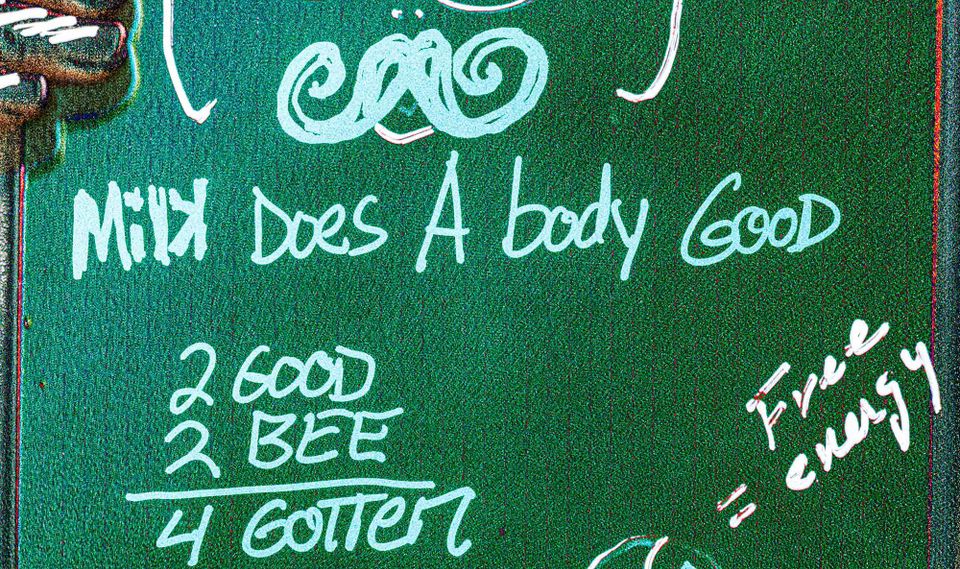 Milk Does A body GOOD
2 GOOD
2 BEE
4 GOTTEN
Free
= energy